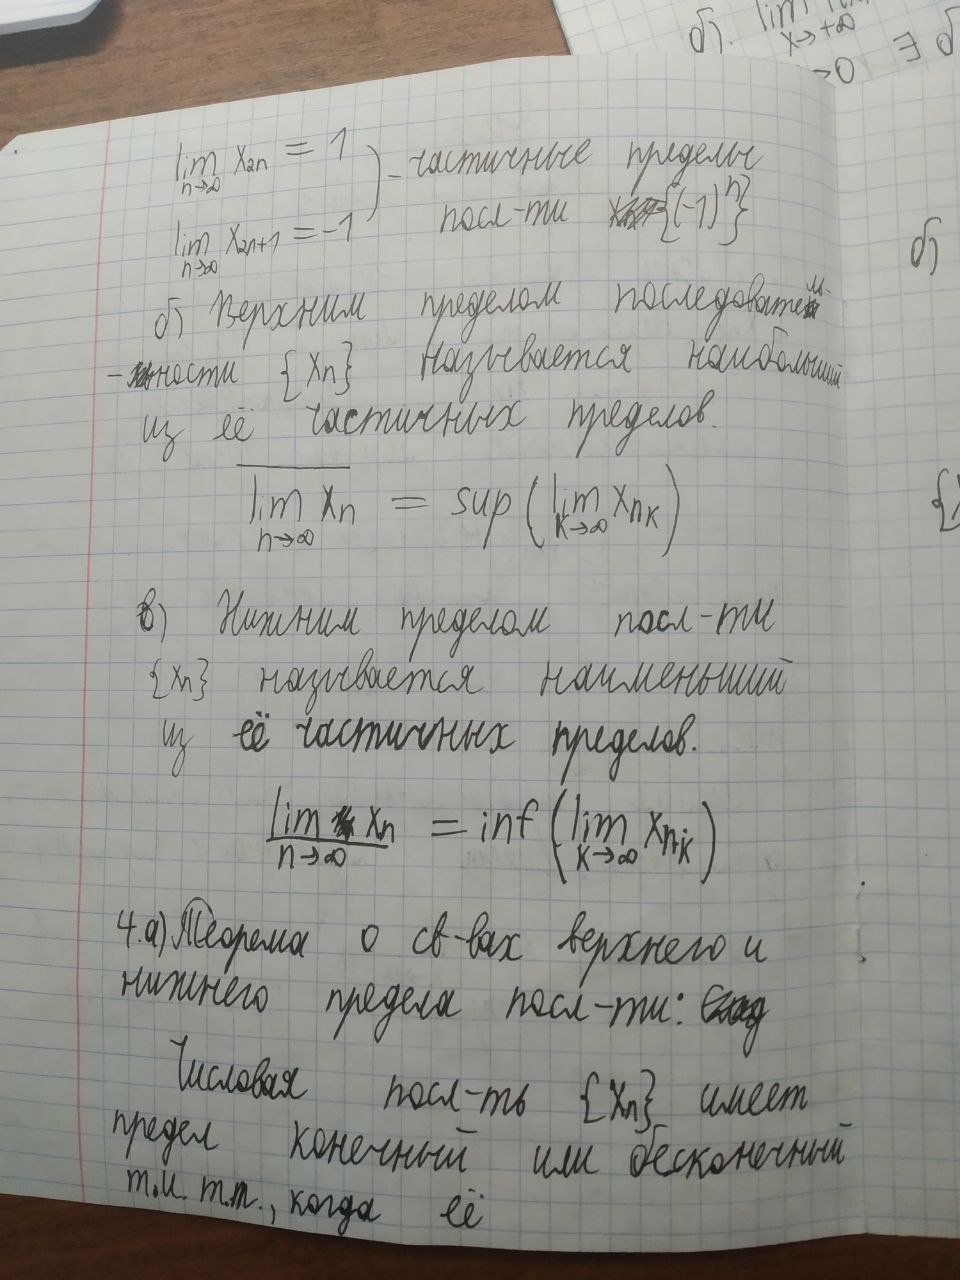 lim x₂ₙ = 1
n→∞
- частичные пределы
lim x₂ₙ₊₁ = -1
n→∞
посл-ти {(-1)ⁿ}
б) Верхним пределом последователь-
-ности {xₙ} называется наибольший
из её частичных пределов.
lim xₙ = sup (lim xₙₖ)
n→∞ k→∞
в) Нижним пределом посл-ти
{xₙ} называется наименьший
из её частичных пределов.
lim xₙ = inf (lim xₙₖ)
n→∞ k→∞
4.а) Теорема о св-вах верхнего и
нижнего предела посл-ти:
Числовая посл-ть {xₙ} имеет
предел конечный или бесконечный
т.и т.т., когда её
б). lim
x→+∞
>0 ∃ б
б)